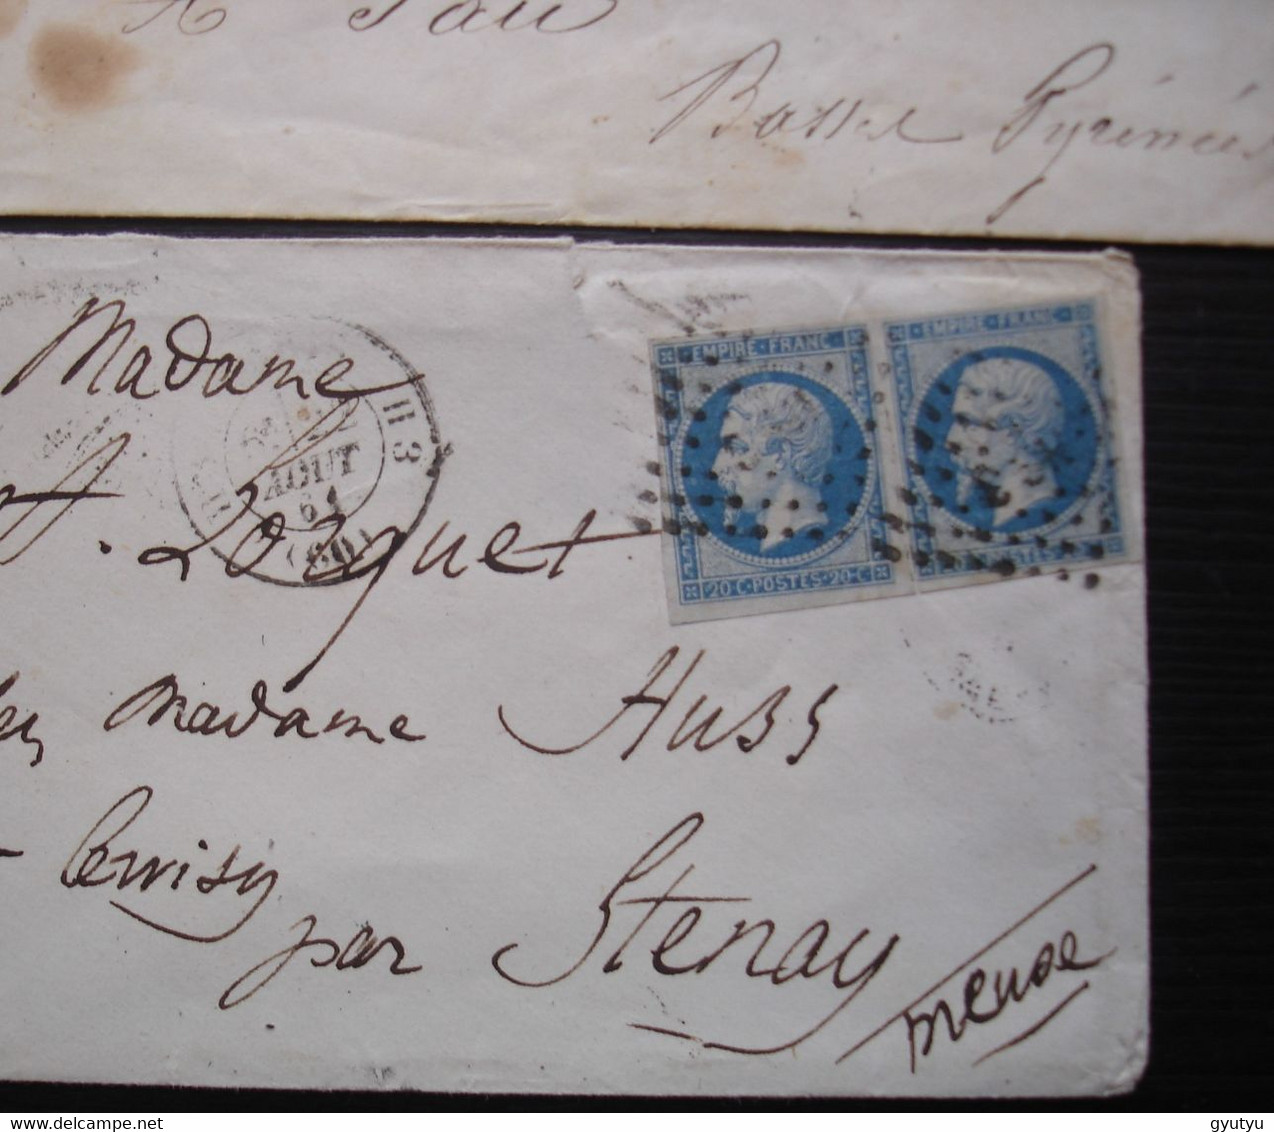 A Pau
Basses Pyrénées
Madame
Lorquet
madame Huss
Cervisy
par Stenay
Meuse
H 3
AOUT
61
(60)
EMPIRE · FRANC ·
20·C·POSTES·20·C·
EMPIRE · FRANC ·
delcampe.net
gyutyu